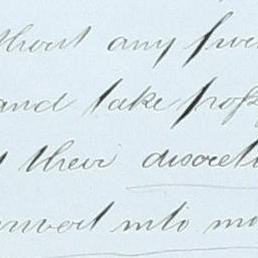 without any fur
and take poss
their discreti
convert into mo